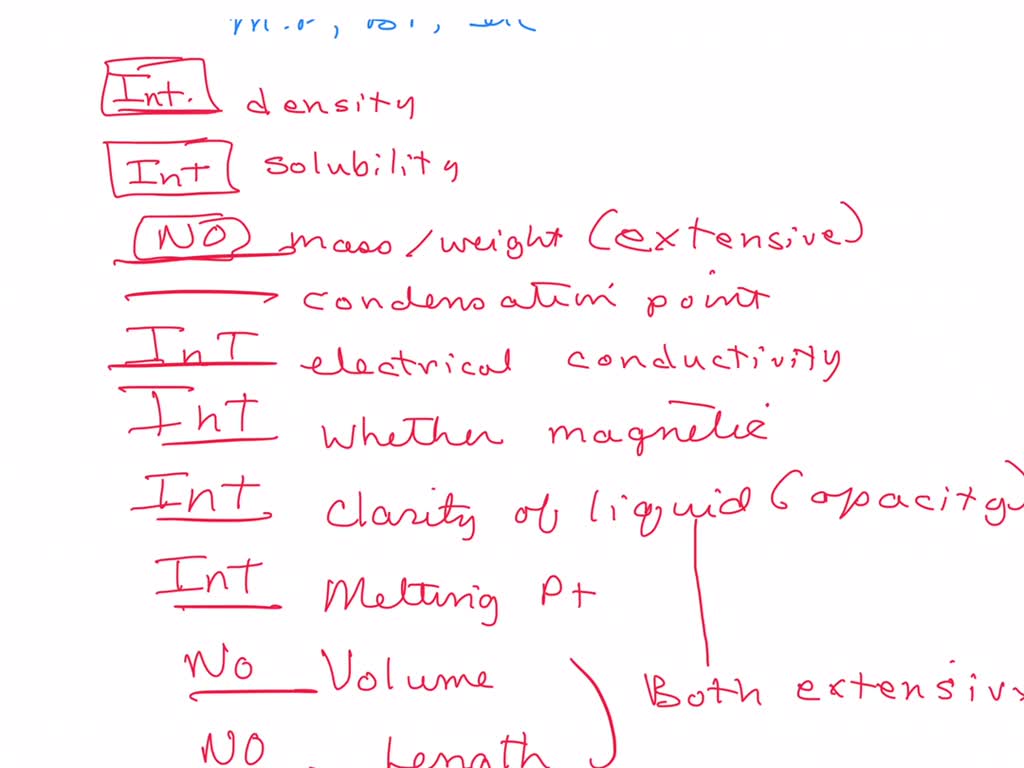 Int. density
Int solubility
NO mass/weight (extensive)
condensation point
InT electrical conductivity
Int whether magnetic
Int Clarity of liquid (opacity)
Int Melting Pt
No Volume
Both extensiv
NO Length